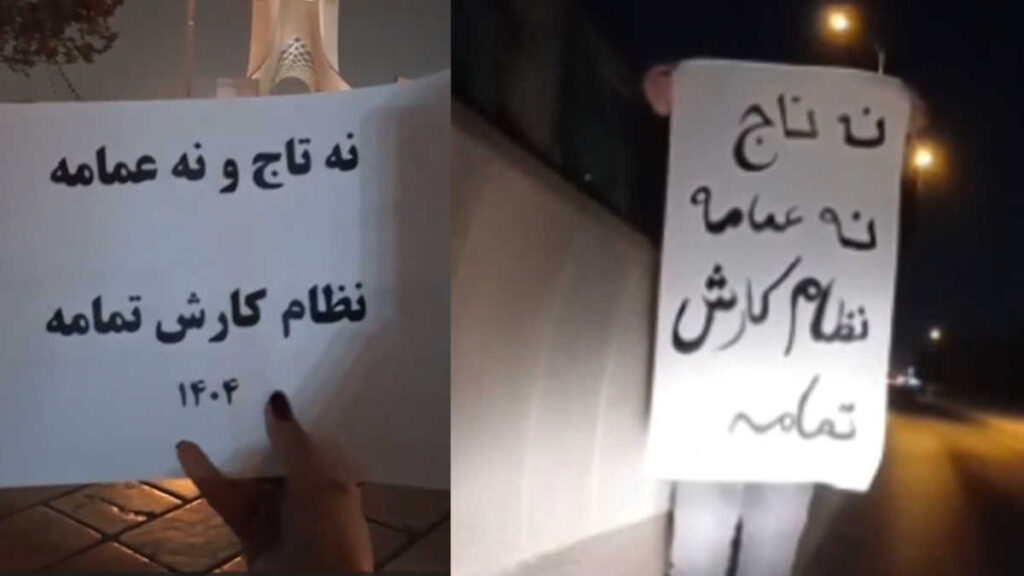 نه تاج و نه عمامه
نظام کارش تمامه
۱۴۰۴
نه تاج
نه عمامه
نظام کارش
تمامه